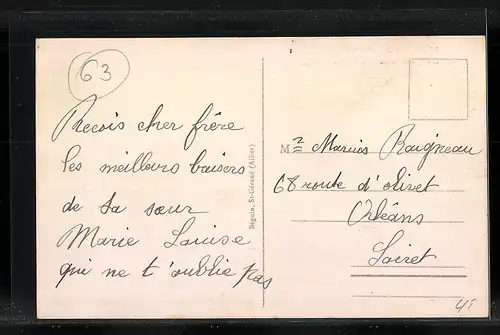 63
Recois cher frère
les meilleurs baisers
de ta sœur
Marie Louise
qui ne t'oublie pas
Séguin, St-Gérand (Allier)
Mr Marius Raigneau
68 route d'olivet
Orléans
Loiret